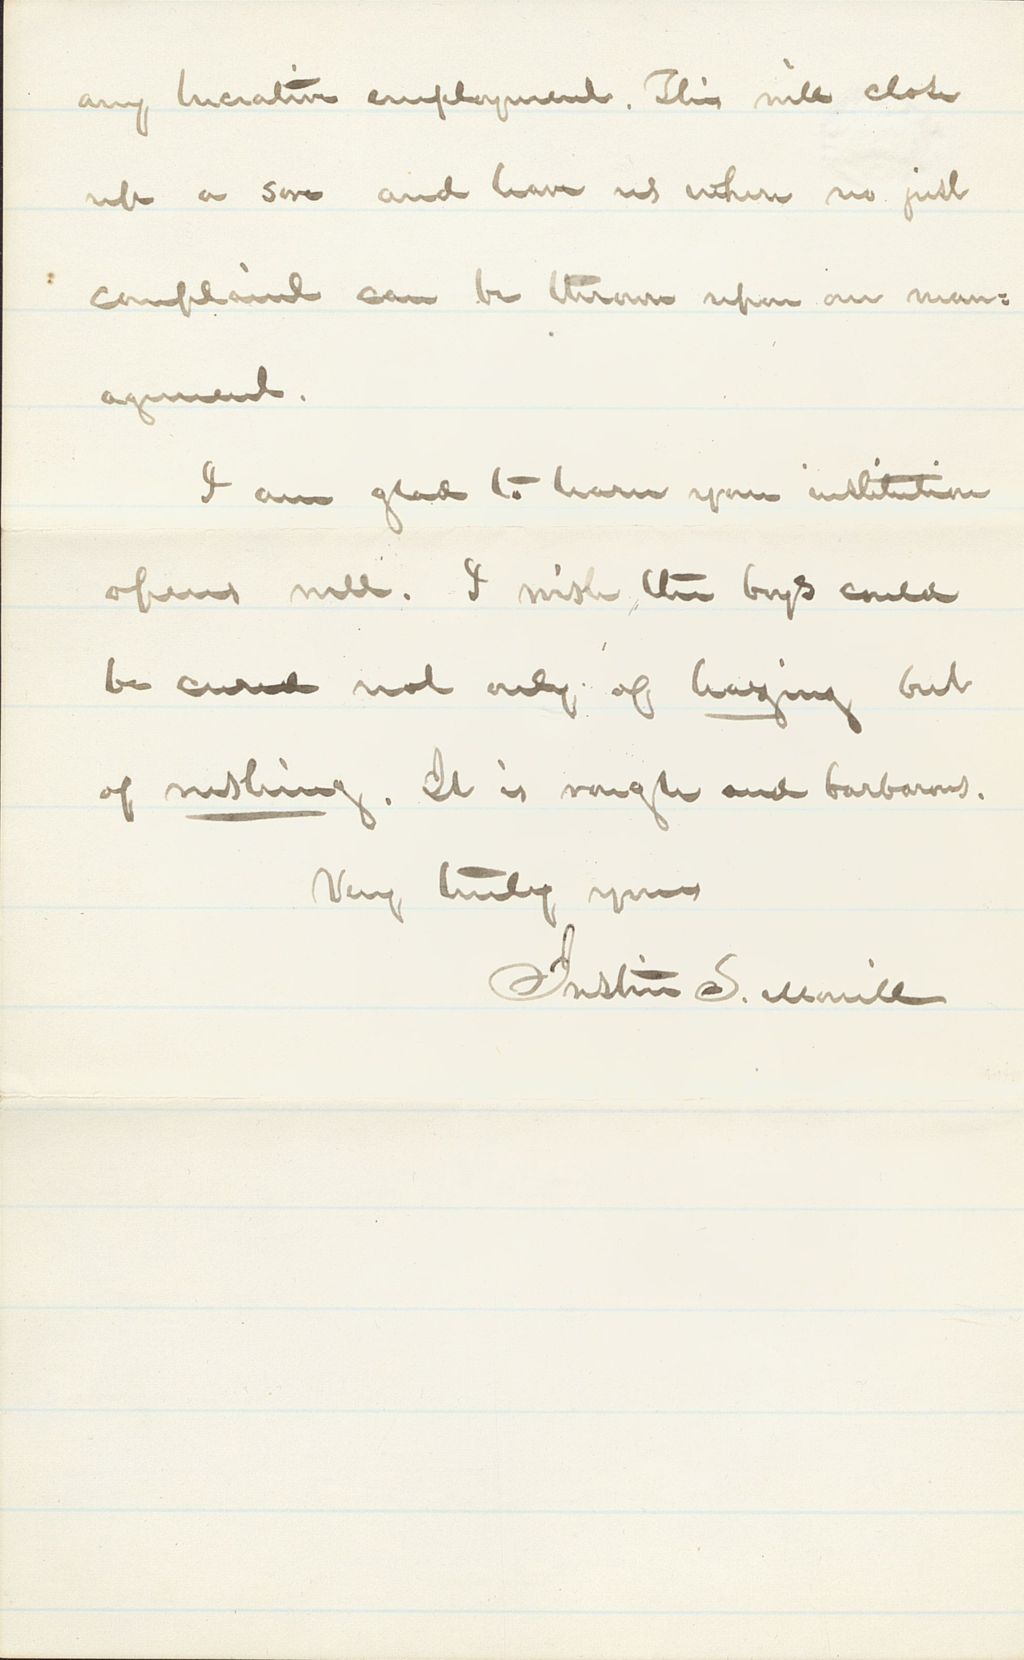 any lucrative employment. This will close
up a sore and leave us where no just
complaint can be thrown upon our man=
agement.
I am glad to learn your institution
opens well. I wish the boys could
be cured not only of hazing but
of rushing. It is rough and barbarous.
Very truly yours
Justin S. Morrill